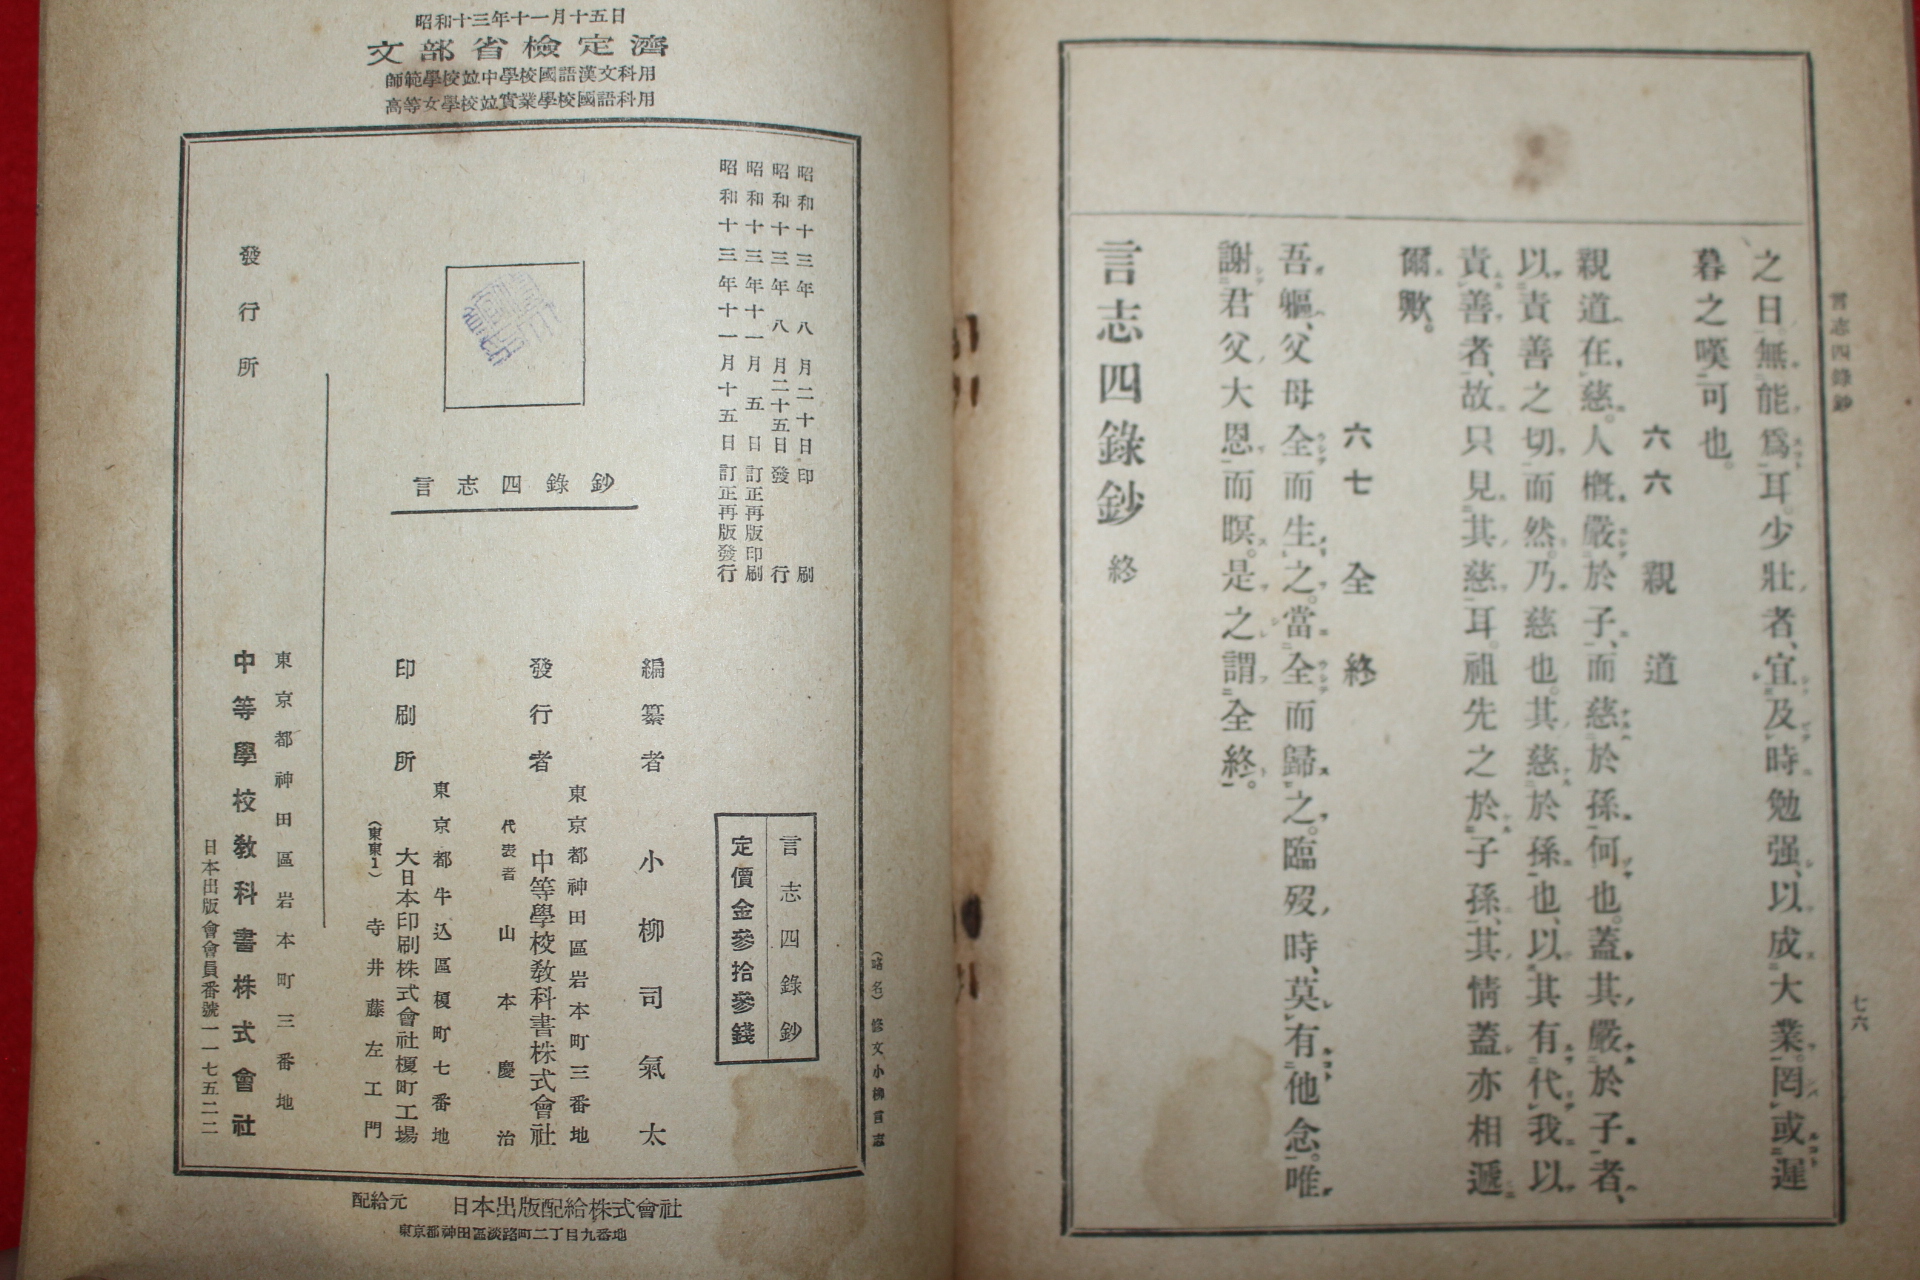 言志四錄鈔
七六
之日、無能爲耳。少壯者、宜及時勉强、以成大業。罔或遲
暮之嘆可也。
六六 親道
親道在慈。人槪嚴於子、而慈於孫何也。蓋其嚴於子者、
以責善之切而然。乃慈也。其慈於孫也、以其有代我以
責善者、故只見其慈耳。祖先之於子孫、其情蓋亦相遞
爾歟。
六七 全終
吾軀、父母全而生之。當全而歸之。臨歿時、莫有他念。唯
謝君父大恩而暝。是之謂全終。
言志四錄鈔 終
昭和十三年十一月十五日
文部省檢定濟
師範學校竝中學校國語漢文科用
高等女學校竝實業學校國語科用
(略名) 修文小柳言志
昭和十三年八月二十日印刷
昭和十三年八月二十五日發行
昭和十三年十一月五日訂正再版印刷
昭和十三年十一月十五日訂正再版發行
言志四錄鈔
定價金參拾參錢
言志四錄鈔
編纂者 小柳司氣太
東京都神田區岩本町三番地
發行者 中等學校敎科書株式會社
代表者 山本慶治
東京都牛込區榎町七番地
印刷所 大日本印刷株式會社榎町工場
(東東1) 寺井藤左工門
發行所
東京都神田區岩本町三番地
中等學校敎科書株式會社
日本出版會會員番號一一七五二二
配給元 日本出版配給株式會社
東京都神田區淡路町二丁目九番地